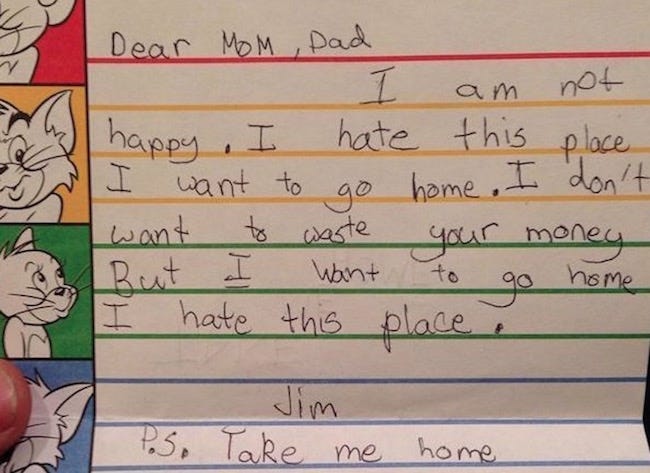 Dear MOM, Dad
I am not
happy. I hate this place
I want to go home. I don't
want to waste your money
But I want to go home
I hate this place.
Jim
P.S. Take me home